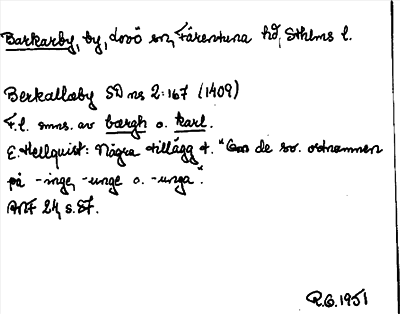 Barkarby, by, Lovö sn, Färentuna hd, Sthlms l.
Berkallæby SD ns 2:167 (1409)
F.l. smns. av bærgh o. karl.
E. Hellquist: Några tillägg t. "Om de sv. ortnamnen
på -inge, -unge o. -unga".
ANF 24, s.
R.G. 1951